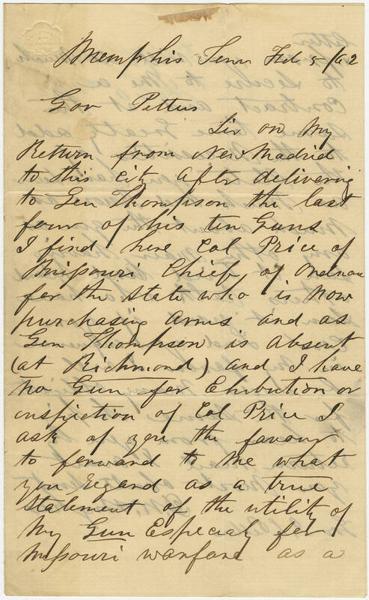 Memphis Tenn Feb 5/62
Gov Pettus
Sir on My
Return from New Madrid
to this City after delivering
to Gen Thompson the last
four of his ten Guns
I find here Col Price of
Missouri Chief of Ordnance
for the State who is now
purchasing Arms and as
Gen Thompson is absent
(at Richmond) and I have
no Gun for Exhibition or
inspection of Col Price I
ask of you the favour
to forward to me what
you regard as a true
Statement of the utility of
My Gun Especialy for
Missouri warfare as a